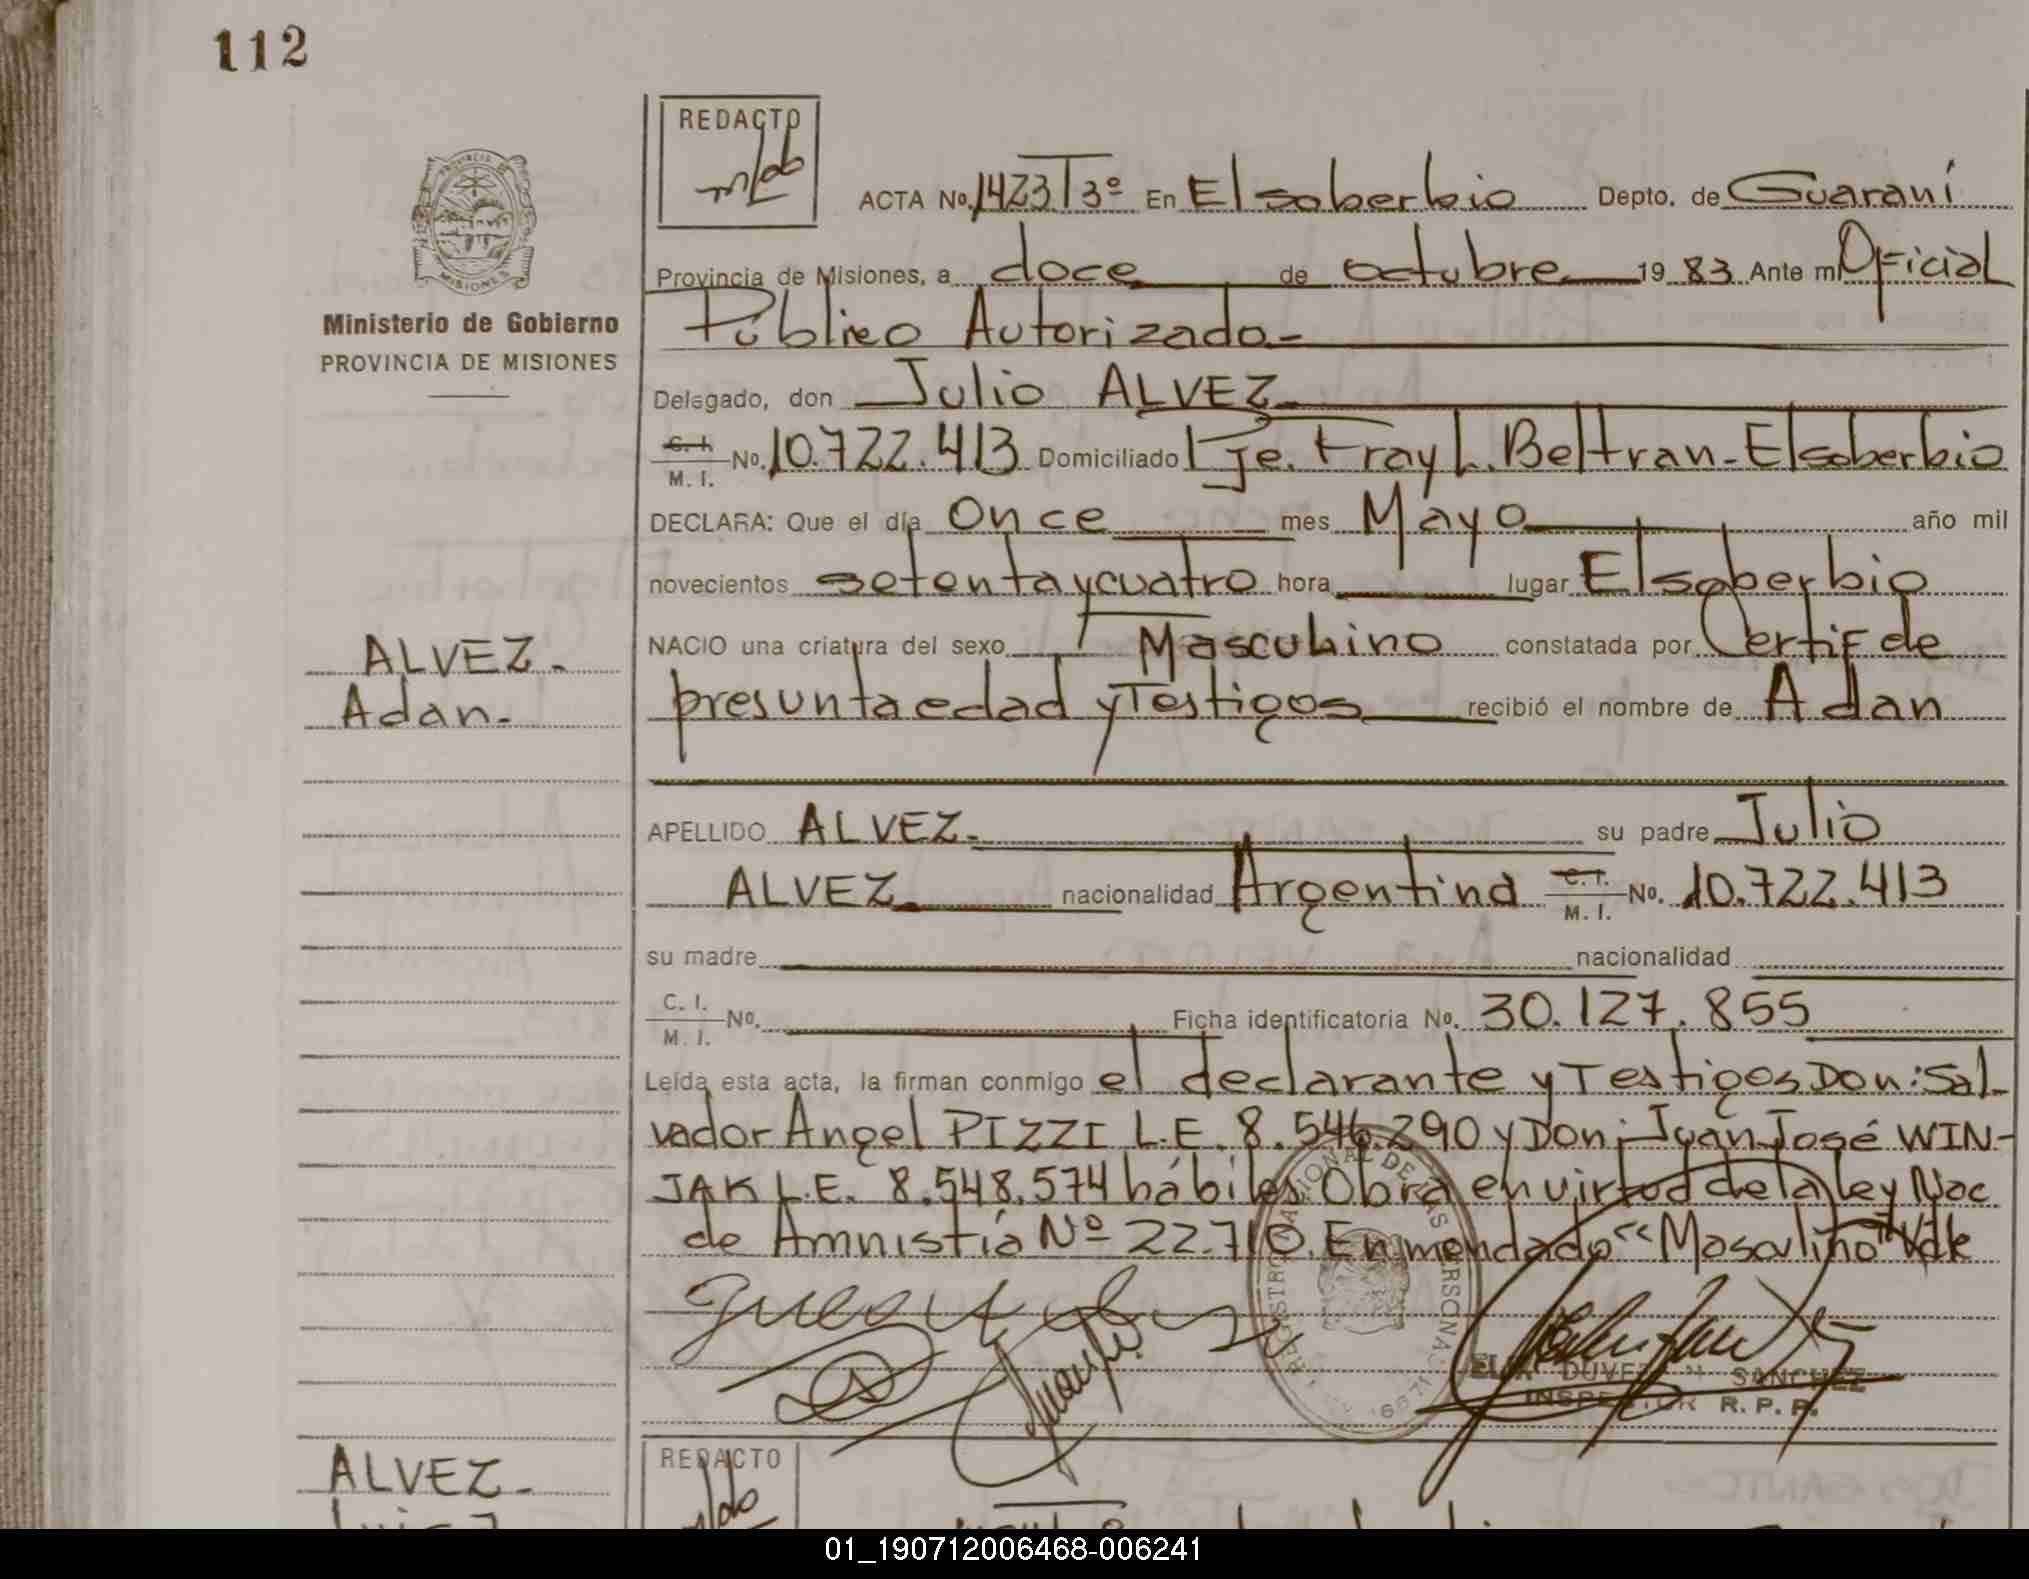 112
REDACTO
ACTA No. 1423 T 3º En El soberbio Depto. de Guaraní
Provincia de Misiones, a doce de octubre 19 83 Ante mí Oficial
Público Autorizado-
PROVINCIA DE MISIONES
Ministerio de Gobierno
PROVINCIA DE MISIONES
Delegado, don Julio ALVEZ
C. I. / M. I. No. 10.722.413 Domiciliado Pje. Fray L. Beltran - El soberbio
DECLARA: Que el día Once mes Mayo año mil
novecientos setenta y cuatro hora lugar El soberbio
ALVEZ.
Adan.
NACIO una criatura del sexo Masculino constatada por Certif de
presunta edad y Testigos recibió el nombre de Adan
APELLIDO ALVEZ. su padre Julio
ALVEZ nacionalidad Argentina C. I. / M. I. No. 10.722.413
su madre nacionalidad
C. I. / M. I. No. Ficha identificatoria No. 30.127.855
Leída esta acta, la firman conmigo el declarante y Testigos Don: Sal-
vador Angel PIZZI L.E. 8.546.290 y Don: Juan José WIN-
JAK L.E. 8.548.574 hábiles Obra en virtud de la ley Nac
de Amnistía Nº 22.710. Enmendado "Masculino" Vale
REGISTRO NACIONAL DE LAS PERSONAS
DUVE SANCHEZ
INSPECTOR R. P. P.
ALVEZ.
REDACTO
01_190712006468-006241